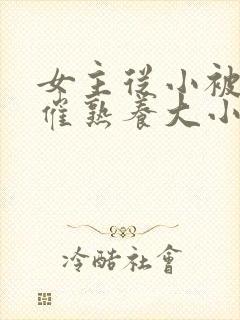 女主從小被
催熟養大小
冷酷社會